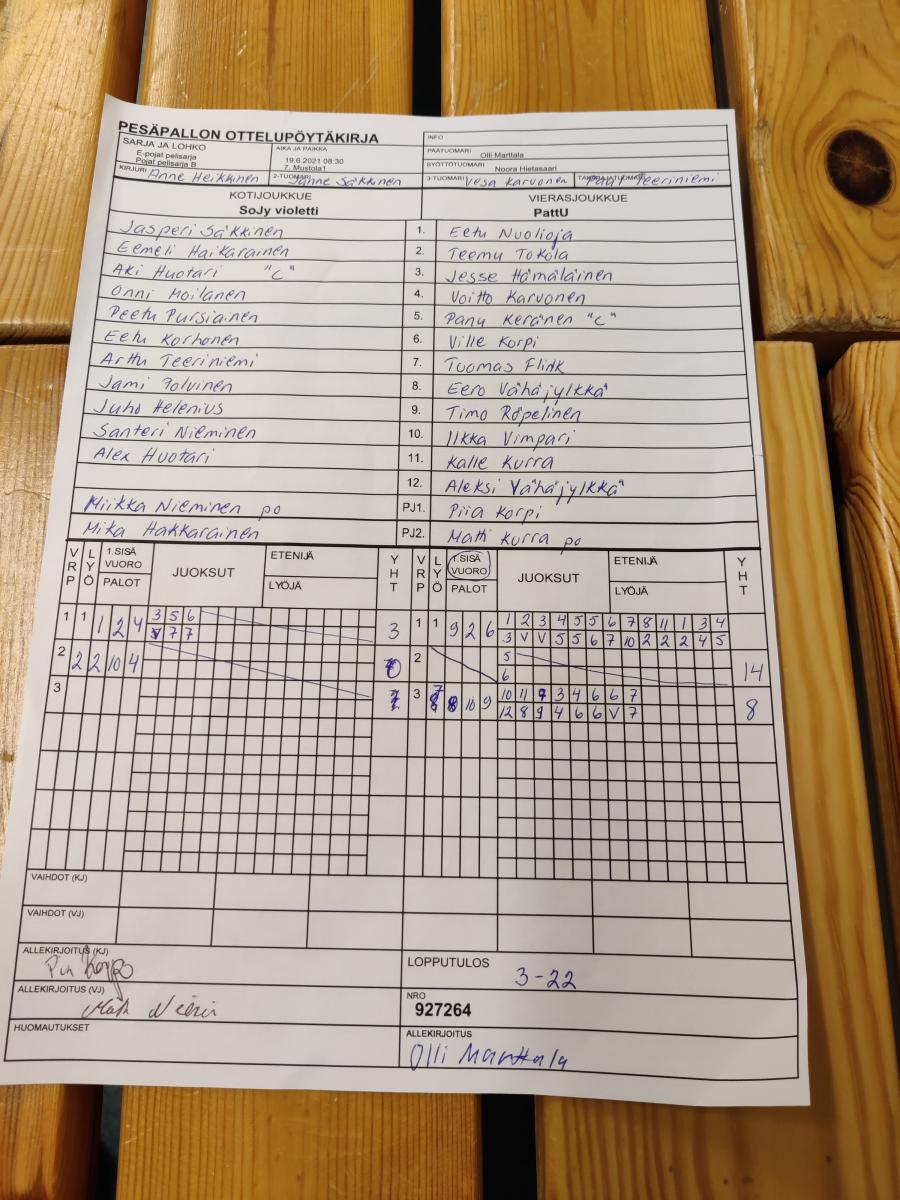 PESÄPALLON OTTELUPÖYTÄKIRJA
SARJA JA LOHKO
E-pojat pelisarja
Pojat pelisarja B
AIKA JA PAIKKA
19.6.2021 08:30
7. Mustola1
INFO
PÄÄTUOMARI
Olli Marttala
SYÖTTÖTUOMARI
Noora Hietasaari
KIRJURI Anne Heikkinen
2-TUOMARI Janne Säkkinen
3-TUOMARI Vesa Karvonen
Teeriniemi
KOTIJOUKKUE
SoJy violetti
VIERASJOUKKUE
PattU
Jasperi Säkkinen 1. Eetu Nuolioja
Eemeli Haikarainen 2. Teemu Tokola
Aki Huotari "C" 3. Jesse Hämäläinen
Onni Moilanen 4. Voitto Karvonen
Peetu Pursiainen 5. Panu Keränen "C"
Eetu Korhonen 6. Ville Korpi
Arttu Teeriniemi 7. Tuomas Flink
Jami Polvinen 8. Eero Vähäjylkkä
Juho Helenius 9. Timo Röpelinen
Santeri Nieminen 10. Ilkka Vimpari
Alex Huotari 11. Kalle Kurra
12. Aleksi Vähäjylkkä
Miikka Nieminen po PJ1. Piia Korpi
Mika Hakkarainen PJ2. Matti Kurra po
VRP LYÖ 1.SISÄ VUORO PALOT JUOKSUT ETENIJÄ LYÖJÄ YHT VRP LYÖ 1.SISÄ VUORO PALOT JUOKSUT ETENIJÄ LYÖJÄ YHT
1 1 1 2 4 3 5 6 3 1 1 9 2 6 1 2 3 4 5 5 6 7 8 11 1 3 4
V 7 7 3 V V 5 5 6 7 10 2 2 2 4 5
2 2 2 10 4 2 5 14
6
3 3 8 10 9 10 11 9 3 4 6 6 7 8
12 8 9 4 6 6 V 7
VAIHDOT (KJ)
VAIHDOT (VJ)
ALLEKIRJOITUS (KJ)
LOPPUTULOS
3-22
ALLEKIRJOITUS (VJ)
NRO
927264
HUOMAUTUKSET
ALLEKIRJOITUS
Olli Marttala